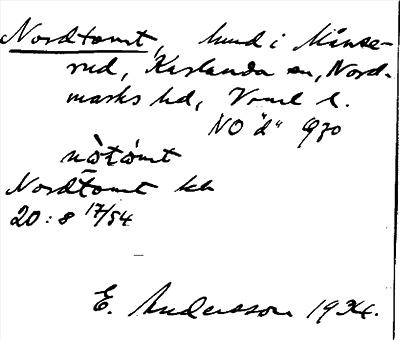 Nordtomt, hund i Månse-
rud, Karlanda sn, Nord-
marks hd, Vrml l.
NO "d" 930
nòtòmt
Nordtomt kk
20:8 17/54
E. Andersson 1934.